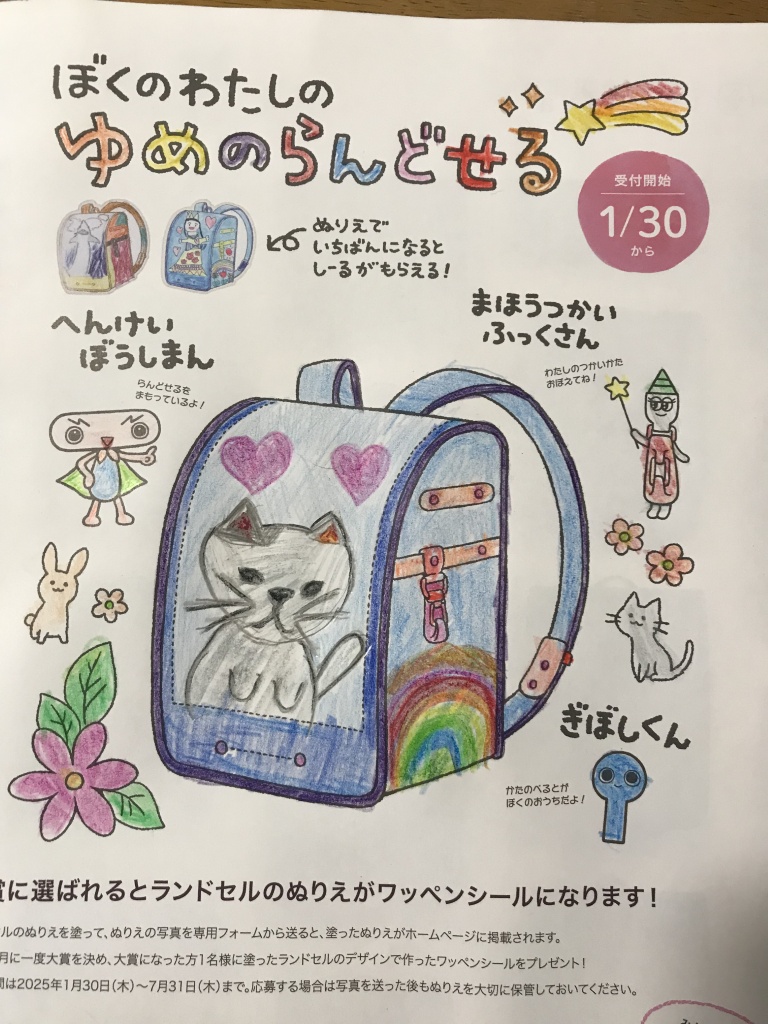 ぼくのわたしの
ゆめのらんどせる
受付開始
1/30
から
ぬりえで
いちばんになると
しーるがもらえる!
へんけい
ぼうしまん
らんどせるを
まもっているよ!
まほうつかい
ふっくさん
わたしのつかいかた
おぼえてね!
ぎぼしくん
かたのべるとが
ぼくのおうちだよ!
賞に選ばれるとランドセルのぬりえがワッペンシールになります!
セルのぬりえを塗って、ぬりえの写真を専用フォームから送ると、塗ったぬりえがホームページに掲載されます。
月に一度大賞を決め、大賞になった方1名様に塗ったランドセルのデザインで作ったワッペンシールをプレゼント!
間は2025年1月30日(木)〜7月31日(木)まで。応募する場合は写真を送った後もぬりえを大切に保管しておいてください。